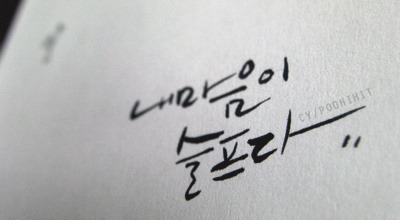 내마음이
슬프다"
CY/POOHIHIT